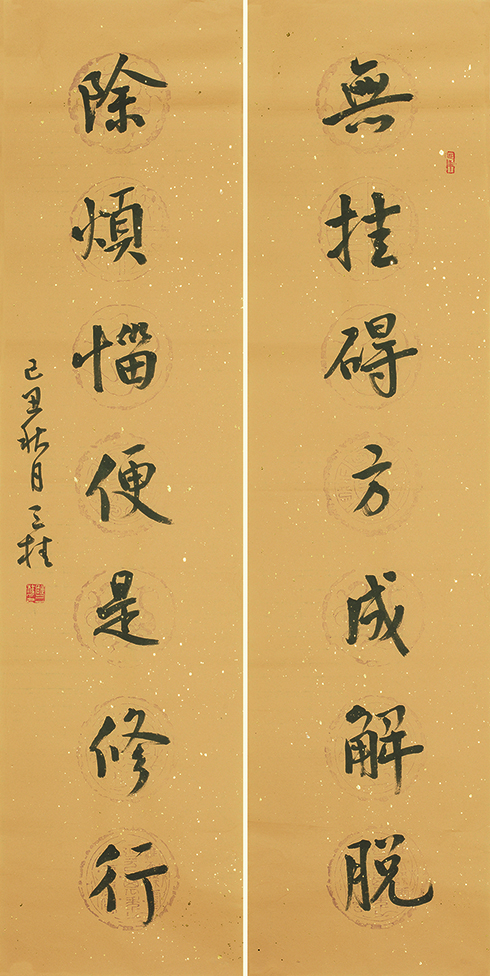 無挂碍方成解脱
除煩惱便是修行
己丑秋月三桂